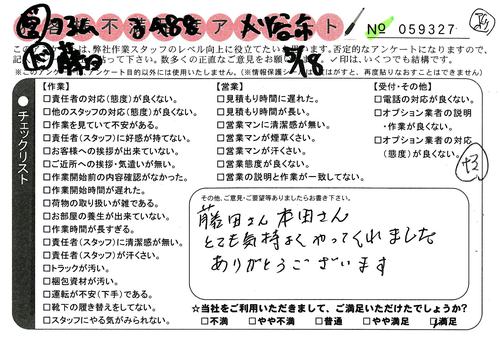 不満度ア
№ 059327
このアンケートは、弊社作業スタッフのレベル向上に役立てたいと思います。否定的なアンケートになりますので、
下さい。数多くの正直なご意見をお願いします。✓印は、いくつでも結構です。
※このアンケート
アンケート目的以外には使用いたしません。(※情報保護シールははがすと、再度貼りなおすことはできません)
チェックリスト
【作業】
□責任者の対応(態度)が良くない。
□他のスタッフの対応(態度)が良くない。
□作業を見ていて不安がある。
□責任者(スタッフ)に好感が持てない。
□お客様への挨拶が出来ていない。
□ご近所への挨拶・気遣いが無い。
□作業開始前の内容確認がなかった。
□作業開始時間が遅れた。
□荷物の取り扱いが雑である。
□お部屋の養生が出来ていない。
□作業時間が長すぎる。
□責任者(スタッフ)に清潔感が無い。
□責任者(スタッフ)が汗くさい。
□トラックが汚い。
□梱包資材が汚い。
□運転が不安(下手)である。
□靴下の履き替えをしてない。
□スタッフにやる気がみられない。
【営業】
□見積もり時間に遅れた。
□見積もり時間が長い。
□営業マンに清潔感が無い。
□営業マンが煙草くさい。
□営業マンが汗くさい。
□営業態度が良くない。
□営業の説明と作業が一致してない。
【受付・その他】
□電話の対応が良くない。
□オプション業者の説明
・作業が良くない。
□オプション業者の対応
(態度)が良くない。
その他、ご意見・ご要望等ありましたらお書き下さい。
藤田さん本田さん
とても気持よくやってくれました
ありがとうございます
☆当社をご利用いただきまして、ご満足いただけたでしょうか?
□不満 □やや不満 □普通 □やや満足 ☑満足